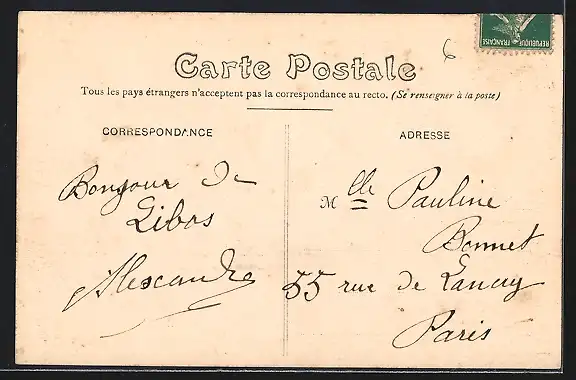 6
REPUBLIQUE FRANÇAISE
Carte Postale
Tous les pays étrangers n'acceptent pas la correspondance au recto. (Se renseigner à la poste)
CORRESPONDANCE
Bonjour de
Libos
Alexandre
ADRESSE
Mlle Pauline
Bonnet
55 rue de Lancry
Paris